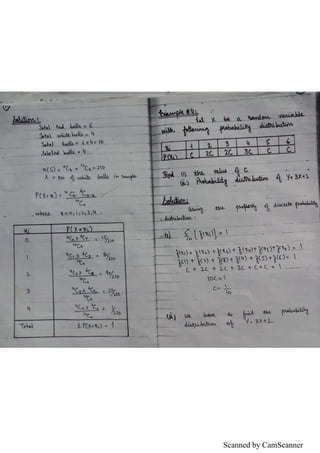 Solution:
Total Red balls = 6
Total white balls = 4
Total balls = 6+4=10
Selected balls = 4
n(S) = ¹⁰C₄ = 210
X = no. of white balls in sample
¹⁰C₄
where x=0,1,2,3,4.
xi P(X=xi)
0 ⁴C₀ × ⁶C₄ / ¹⁰C₄ = 15/210
1 ⁴C₁ × ⁶C₃ / ¹⁰C₄ = 80/210
2 ⁴C₂ × ⁶C₂ / ¹⁰C₄ = 90/210
3 ⁴C₃ × ⁶C₁ / ¹⁰C₄ = 24/210
4 ⁴C₄ × ⁶C₀ / ¹⁰C₄ = 1/210
Total ΣP(X=xi) = 1
Example #4:
Let X be a random variable
with following probability distribution
xi 1 2 3 4 5 6
P(xi) C 2C 2C 3C C C
Find (i) the value of C
(ii) Probability distribution of Y=3X+2
Solution:
Using the property of discrete probability
distribution.
f(x₁)+f(x₂)+f(x₃)+f(x₄)+f(x₅)+f(x₆) = 1
f(1)+f(2)+f(3)+f(4)+f(5)+f(6)=1
C + 2C + 2C + 3C + C + C = 1
10C=1
C= 1/10
(ii) We have to find the probability
distribution of Y=3X+2
Scanned by CamScanner